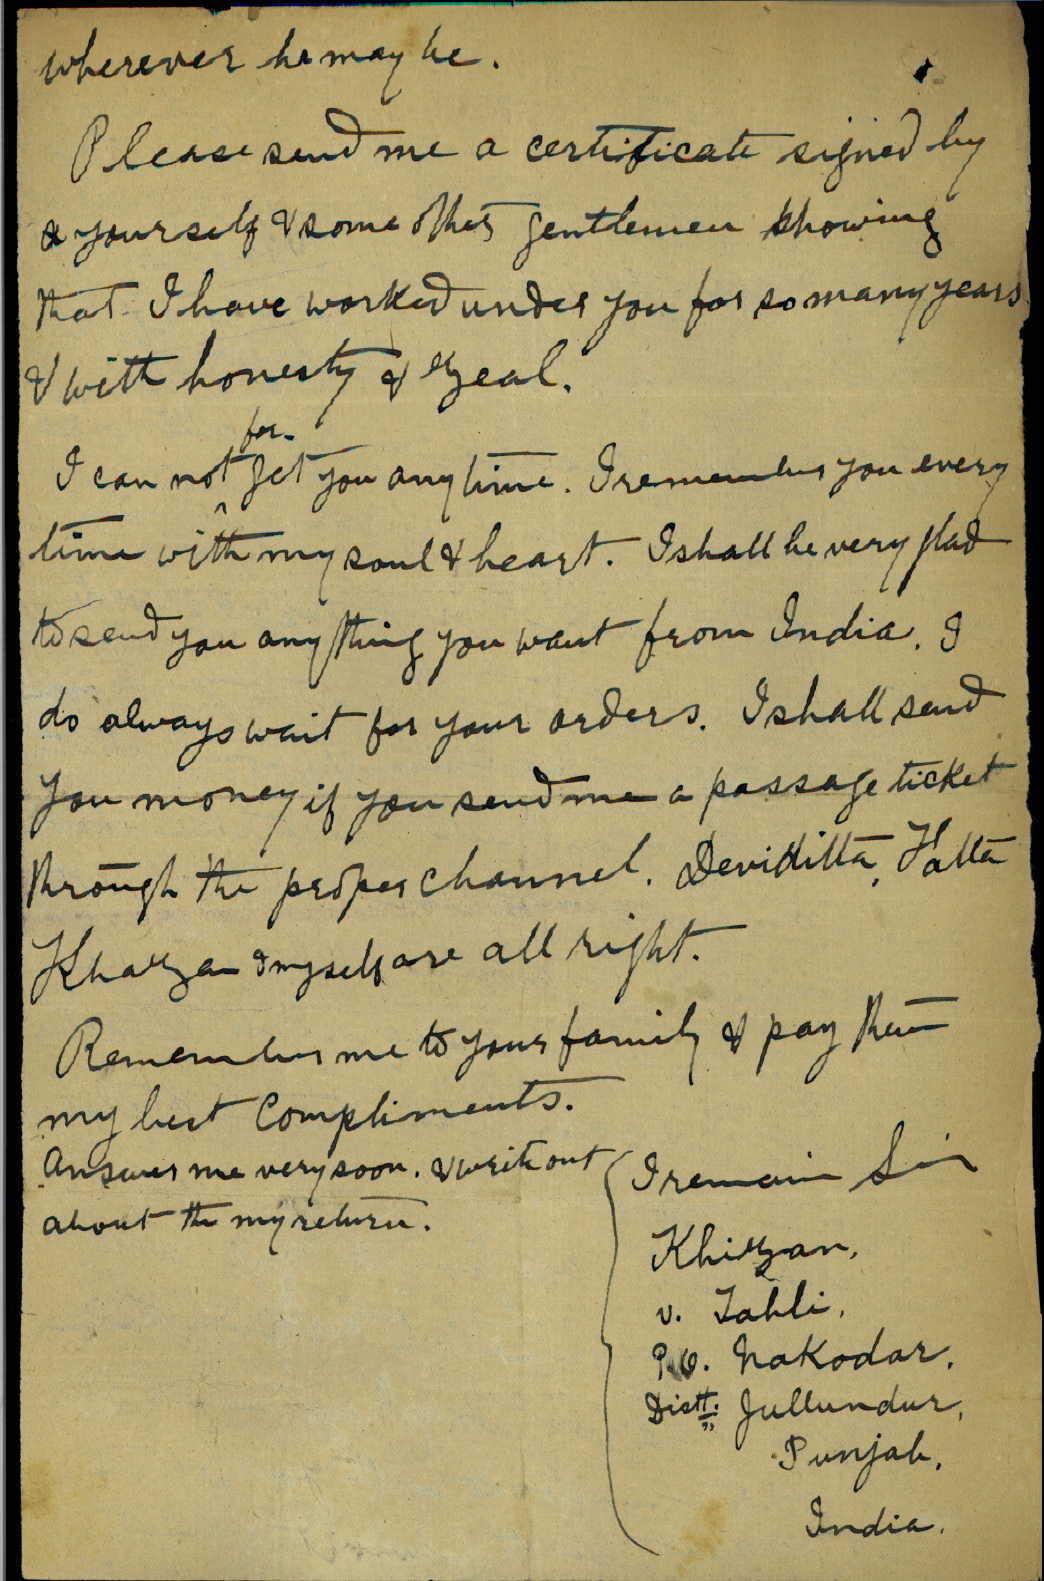 wherever he may be.
Please send me a certificate signed by
yourself & some other gentlemen showing
that I have worked under you for so many years
& with honesty & zeal.
for-
I can not get you any time. I remember you every
time with my soul & heart. I shall be very glad
to send you anything you want from India. I
do always wait for your orders. I shall send
you money if you send me a passage ticket
through the proper channel. Deviditta,
Khazan & myself are all right.
Remember me to your family & pay them
my best Compliments.
Answer me very soon. & write out
about the my return.
I remain Sir
Khizan,
v. Tahli,
P.O. Nakodar,
Distt: Jullundur,
Punjab,
India.